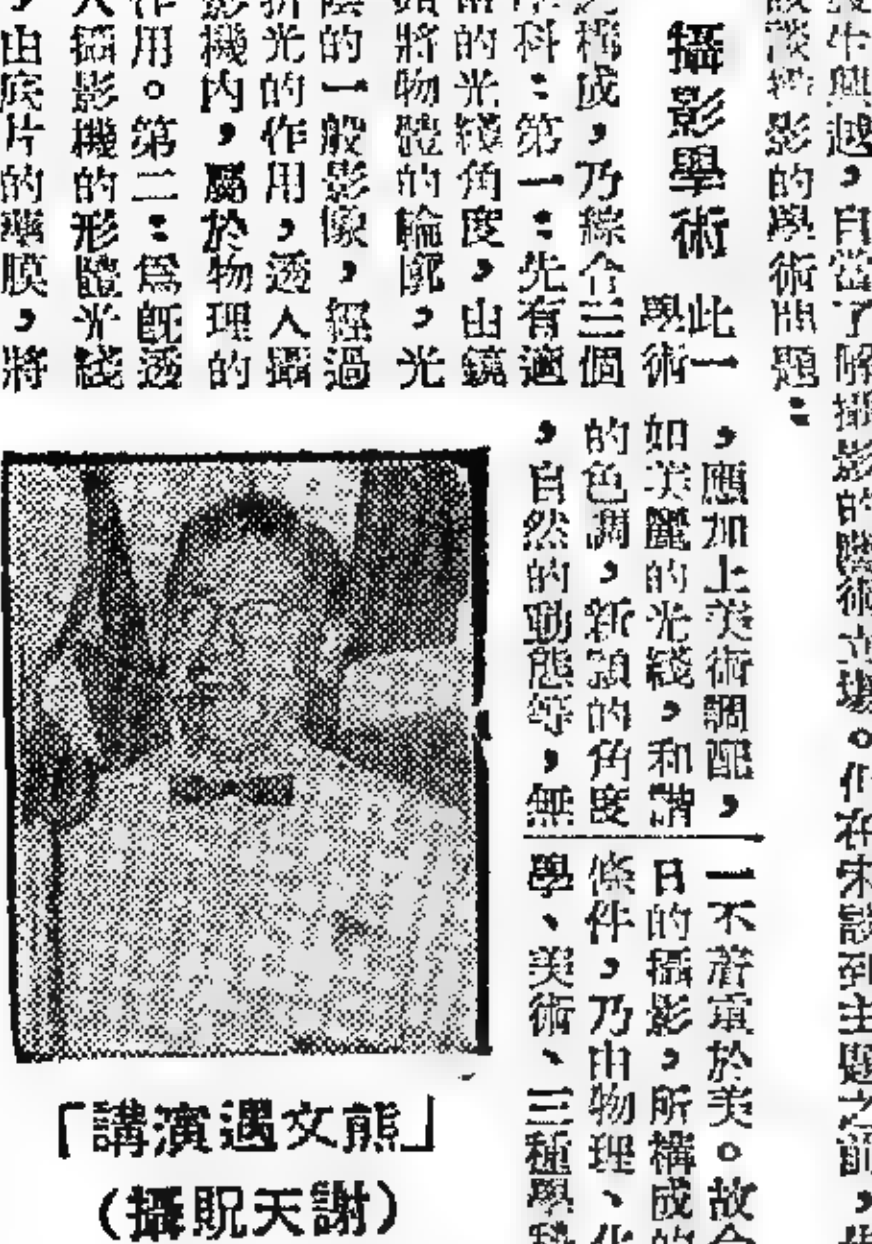 生興趣,自當了解攝影的藝術立場。但在未談到主題之前,
談攝影的學術問題:
攝影學術
此一
學術
構成,乃綜合三個
科:第一:先有適
的光綫角度,由鏡
將物體的輪廓,光
的一般影像,經過
折光的作用,透入攝
影機內,屬於物理的
作用。第二:爲既透
入攝影機的形體光綫
,由底片的藥膜,將
,應加上美術調配,
如美麗的光綫,和諧
的色調,新穎的角度
,自然的動態等,無
一不着重於美。故合
目的攝影,所構成的
條件,乃由物理、化
學、美術、三種學科
「熊文遇演講」
(謝天眖攝)